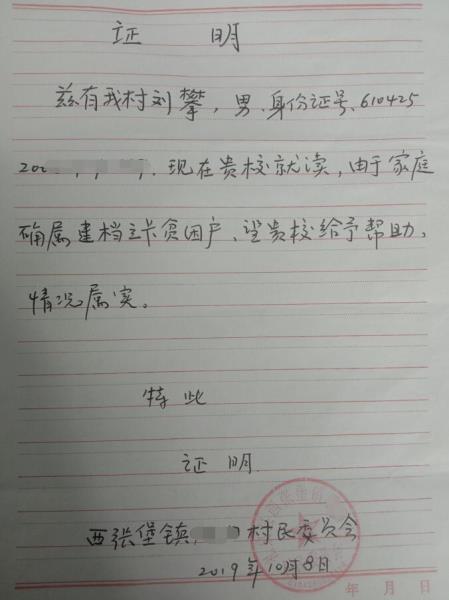 证 明
兹有我村刘攀，男、身份证号、610425
200 ，现在贵校就读，由于家庭
确属建档立卡贫困户、望贵校给予帮助、
情况属实。
特此
证明
西张堡镇 村民委员会
2019年10月8日
年 月 日